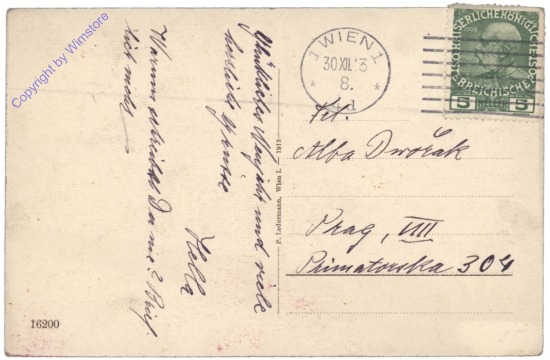 Glückliches Neujahr und viele
herzliche Grüsse
Hella
Warum schreibst Du nie? Brief.
lich mehr
P. Ledermann, Wien I. 1913
16200
1 WIEN 1
30 XII 13
8.
KAISERLICHE KÖNIGLICHE
ÖSTERREICHISCHE POST
5 HELLER 5
Frl.
Alba Dwořak
Prag, VIII
Primatorska 304
Copyright by Winstore